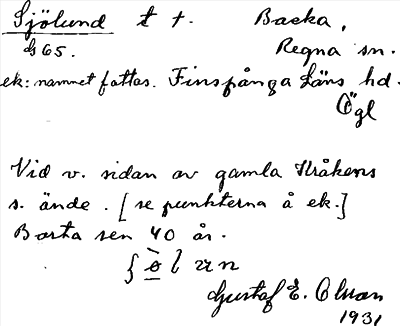 Sjölund t t. Backa,
G 65. Regna sn.
ek: namnet fattas. Finspånga läns hd.
Ögl
Vid v. sidan av gamla Kråkens
s. ände. [se punkterna å ek.]
Borta sen 40 år.
Gustaf E. Olman
1931